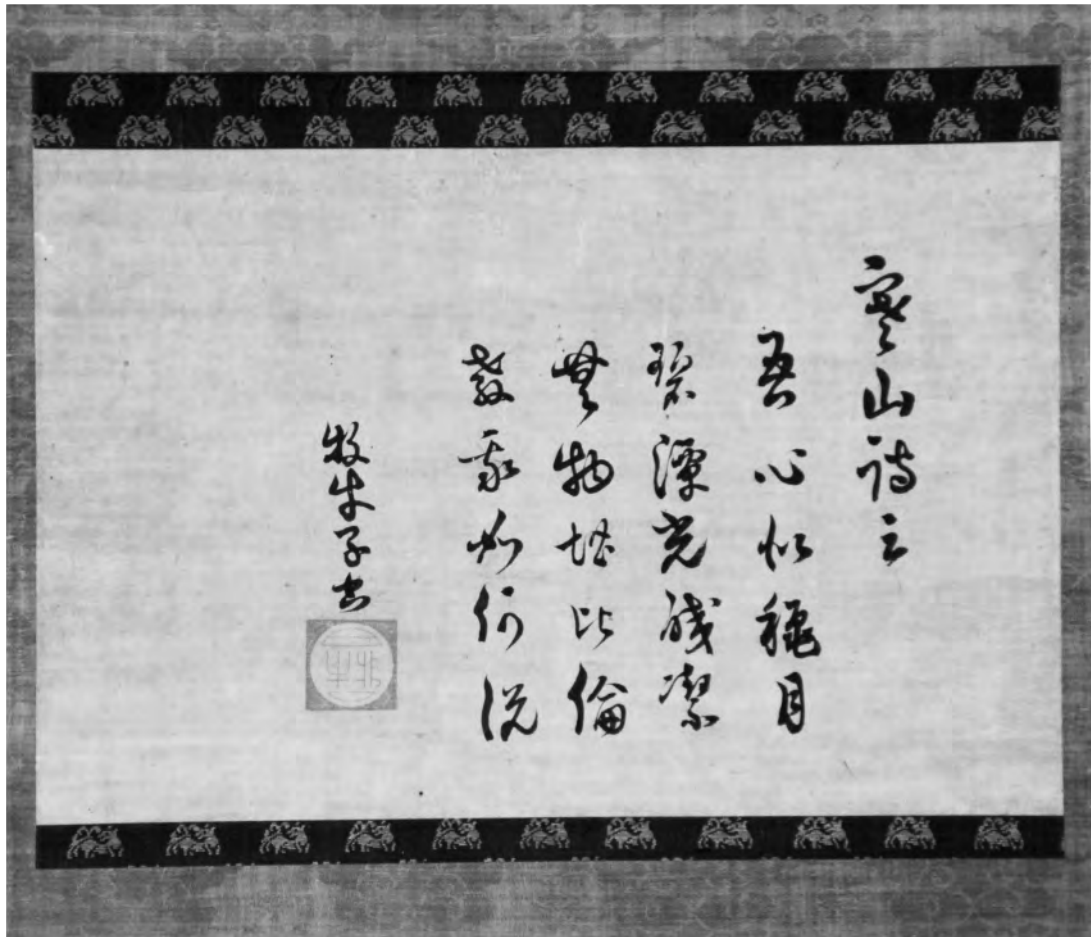 寒山詩云
吾心似穐月
碧潭光潔
無物堪比倫
教我如何説
牧牛子書